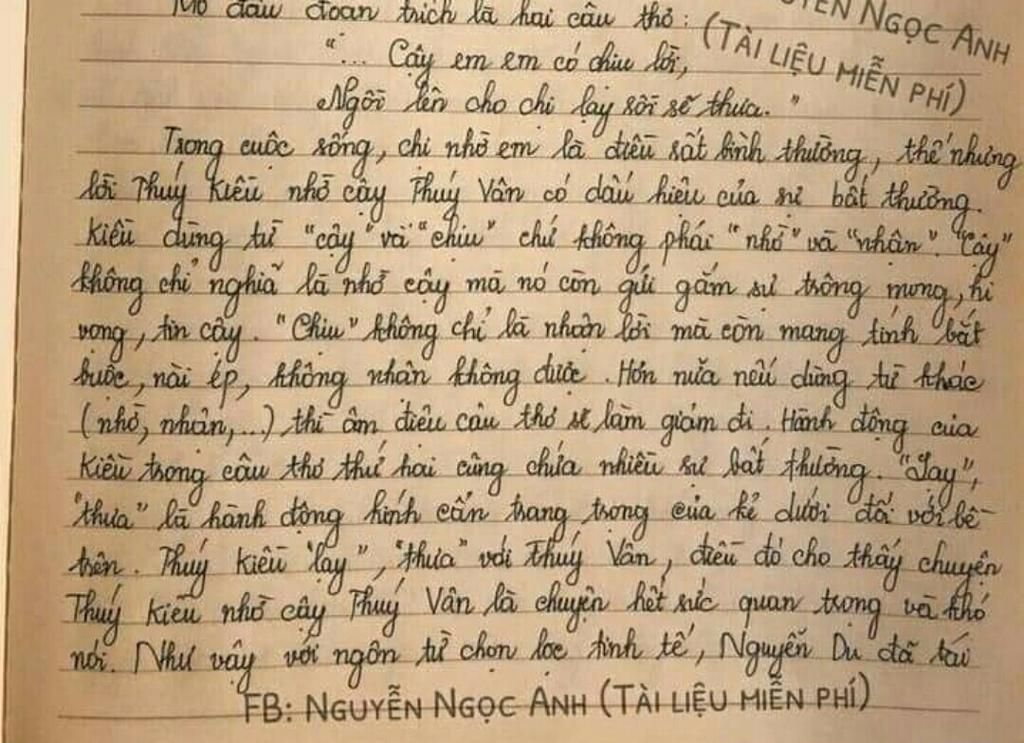 Mở đầu đoạn trích là hai câu thơ:
NGUYỄN NGỌC ANH
(TÀI LIỆU MIỄN PHÍ)
"... Cậy em em có chịu lời,
Ngồi lên cho chị lạy rồi sẽ thưa."
Trong cuộc sống, chị nhờ em là điều rất bình thường, thế nhưng
lời Thuý Kiều nhờ cậy Thuý Vân có dấu hiệu của sự bất thường.
Kiều dùng từ "cậy" và "chịu" chứ không phải "nhờ" và "nhận". "Cậy"
không chỉ nghĩa là nhờ cậy mà nó còn gửi gắm sự trông mong, hi
vọng, tin cậy. "Chịu" không chỉ là nhận lời mà còn mang tính bắt
buộc, nài ép, không nhận không được. Hơn nữa nếu dùng từ khác
(nhờ, nhận,...) thì âm điệu câu thơ sẽ làm giảm đi. Hành động của
Kiều trong câu thơ thứ hai cũng chứa nhiều sự bất thường. "Lạy",
"thưa" là hành động kính cẩn trang trọng của kẻ dưới đối với bề
trên. Thuý Kiều "lạy", "thưa" với Thuý Vân, điều đó cho thấy chuyện
Thuý Kiều nhờ cậy Thuý Vân là chuyện hết sức quan trọng và khó
nói. Như vậy với ngôn từ chọn lọc tinh tế, Nguyễn Du đã tái
FB: NGUYỄN NGỌC ANH (TÀI LIỆU MIỄN PHÍ)